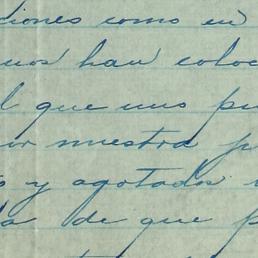 ciones como en
nos han coloc
l que uno pu
or nuestra p
s y agotados
da de que p